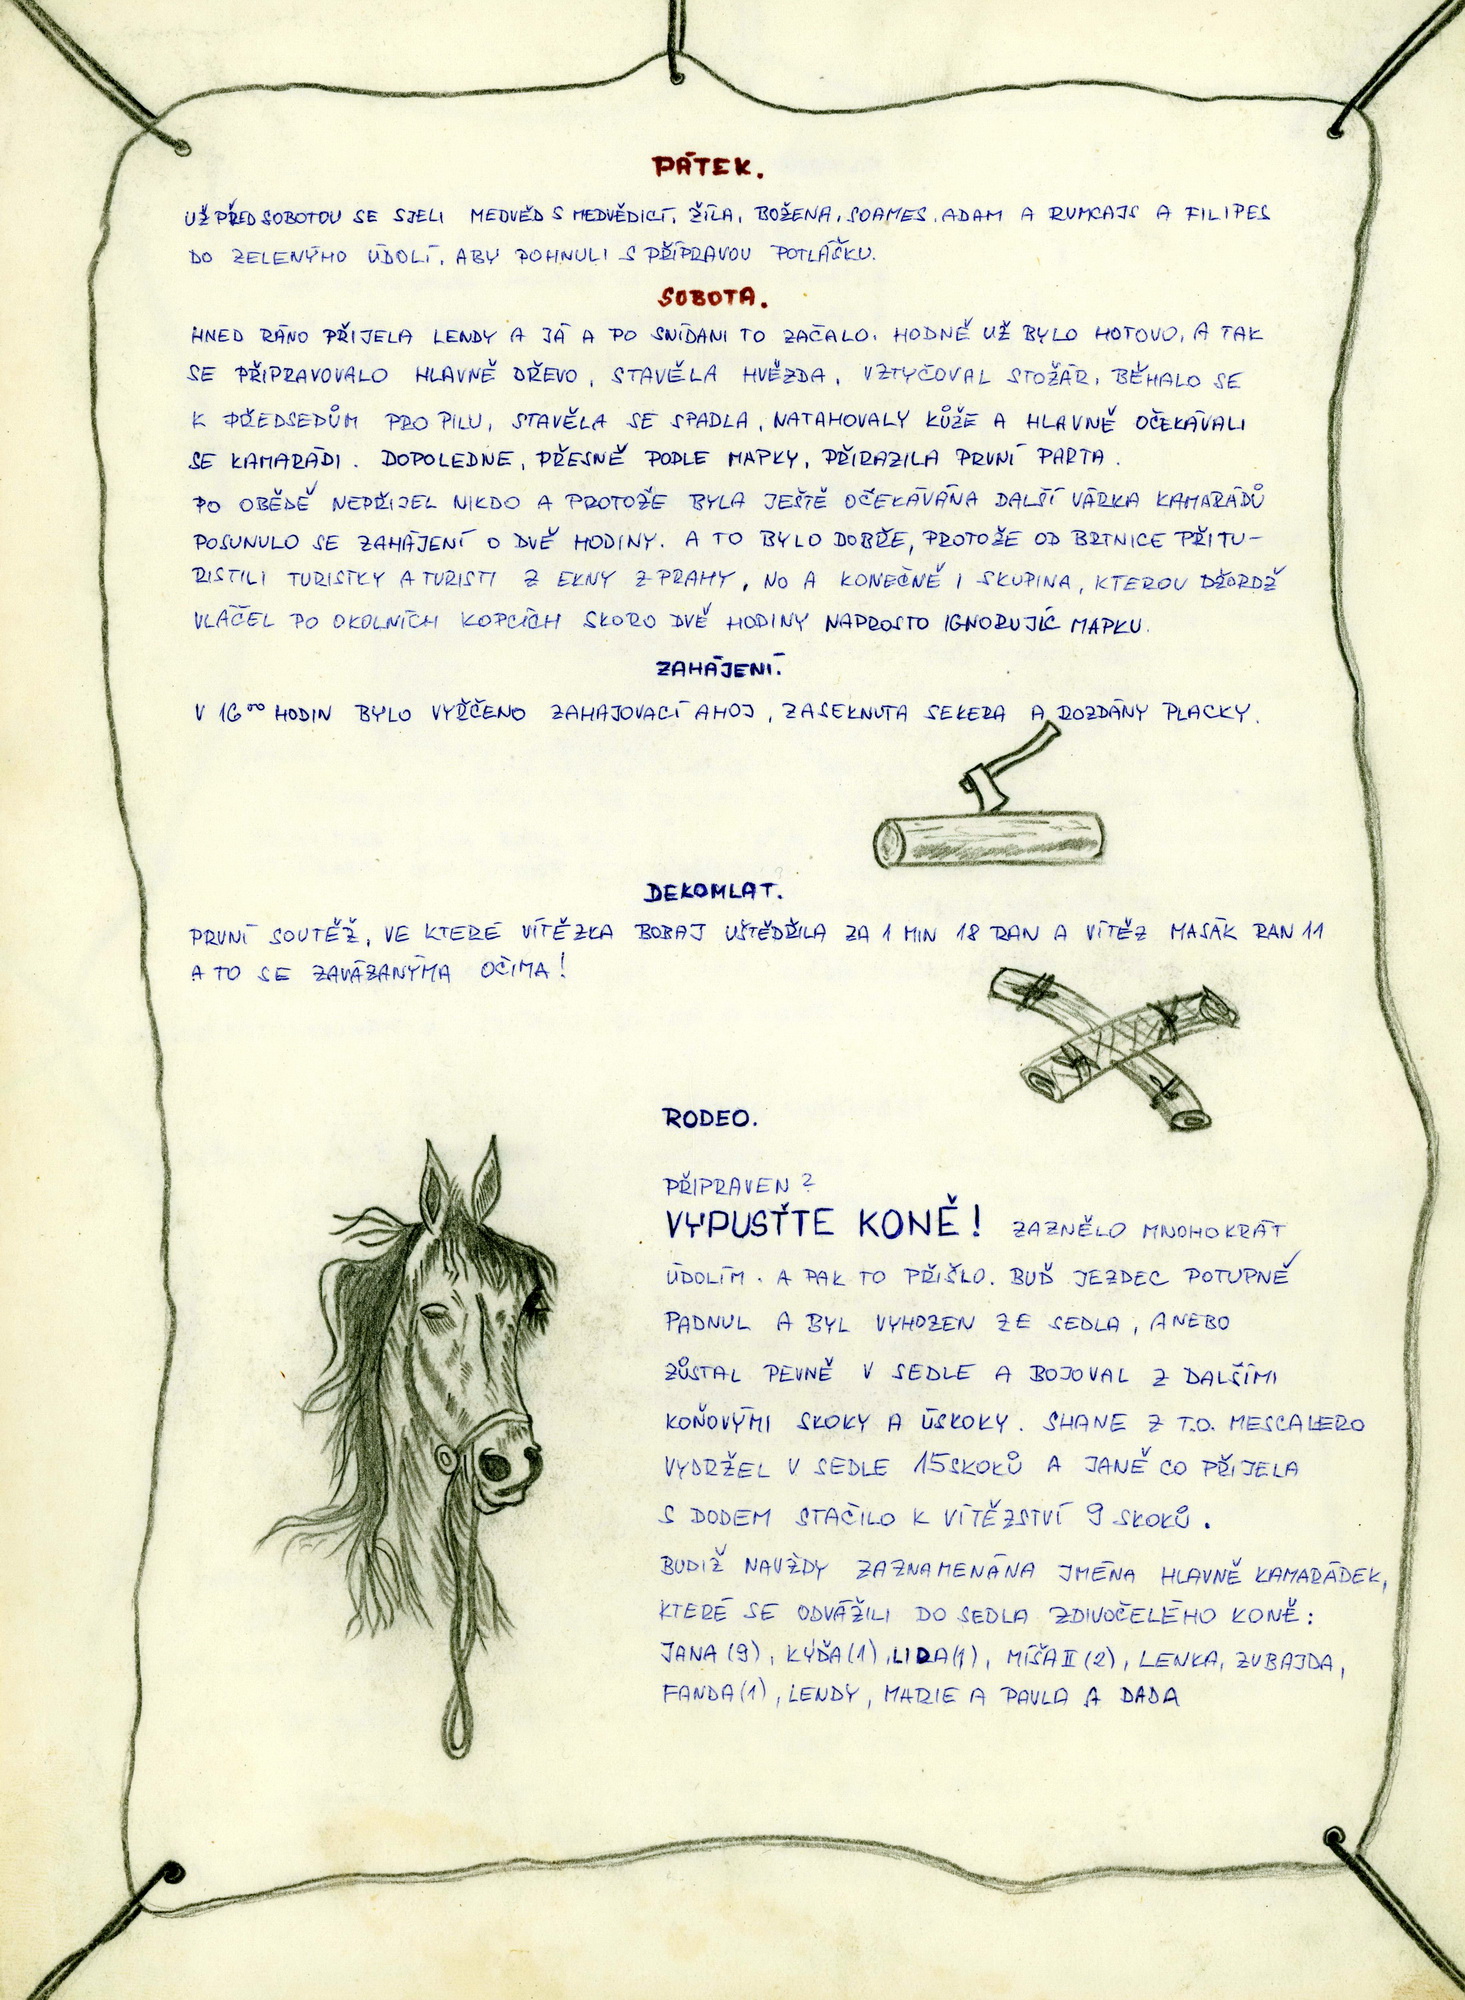 PÁTEK.
UŽ PŘED SOBOTOU SE SJELI MEDVĚD S MEDVĚDICÍ, ŽÍLA, BOŽENA, SOAMES, ADAM A RUMCAJS A FILIPES
DO ZELENÝHO ÚDOLÍ, ABY POHNULI S PŘÍPRAVOU POTLÁŠKU.
SOBOTA.
HNED RÁNO PŘIJELA LENDY A JÁ A PO SNÍDANI TO ZAČALO. HODNĚ UŽ BYLO HOTOVO, A TAK
SE PŘIPRAVOVALO HLAVNĚ DŘEVO, STAVĚLA HVĚZDA, VZTYČOVAL STOŽÁR, BĚHALO SE
K PŘEDSEDŮM PRO PILU, STAVĚLA SE SPADLA, NATAHOVALY KŮŽE A HLAVNĚ OČEKÁVALI
SE KAMARÁDI. DOPOLEDNE, PŘESNĚ PODLE MAPKY, PŘIRAZILA PRVNÍ PARTA.
PO OBĚDĚ NEPŘIJEL NIKDO A PROTOŽE BYLA JEŠTĚ OČEKÁVÁNA DALŠÍ VÁRKA KAMARÁDŮ
POSUNULO SE ZAHÁJENÍ O DVĚ HODINY. A TO BYLO DOBŘE, PROTOŽE OD BRTNICE PŘITU-
RISTILI TURISTKY A TURISTI Z EKNY Z PRAHY, NO A KONEČNĚ I SKUPINA, KTEROU DŽORDŽ
VLÁČEL PO OKOLNÍCH KOPCÍCH SKORO DVĚ HODINY NAPROSTO IGNORUJÍC MAPKU.
ZAHÁJENÍ.
V 16⁰⁰ HODIN BYLO VYŘČENO ZAHAJOVACÍ AHOJ, ZASEKNUTA SEKERA A ROZDÁNY PLACKY.
DEKOMLAT.
PRVNÍ SOUTĚŽ, VE KTERÉ VÍTĚZKA BOBAJ UŠTĚDŘILA ZA 1 MIN 18 RAN A VÍTĚZ MASÁK RAN 11
A TO SE ZAVÁZANÝMA OČIMA!
RODEO.
PŘIPRAVEN?
VYPUSŤTE KONĚ! ZAZNĚLO MNOHOKRÁT
ÚDOLÍM. A PAK TO PŘIŠLO. BUĎ JEZDEC POTUPNĚ
PADNUL A BYL VYHOZEN ZE SEDLA, ANEBO
ZŮSTAL PEVNĚ V SEDLE A BOJOVAL Z DALŠÍMI
KOŇOVÝMI SKOKY A ÚSKOKY. SHANE Z T.O. MESCALERO
VYDRŽEL V SEDLE 15 SKOKŮ A JANĚ CO PŘIJELA
S DODEM STAČILO K VÍTĚZSTVÍ 9 SKOKŮ.
BUDIŽ NAVŽDY ZAZNAMENÁNA JMÉNA HLAVNĚ KAMARÁDEK,
KTERÉ SE ODVÁŽILI DO SEDLA ZDIVOČELÉHO KONĚ:
JANA (9), KÝĎA (1), LIDA (1), MÍŠA II (2), LENKA, ZUBAJDA,
FANDA (1), LENDY, MARIE A PAVLA A DADA